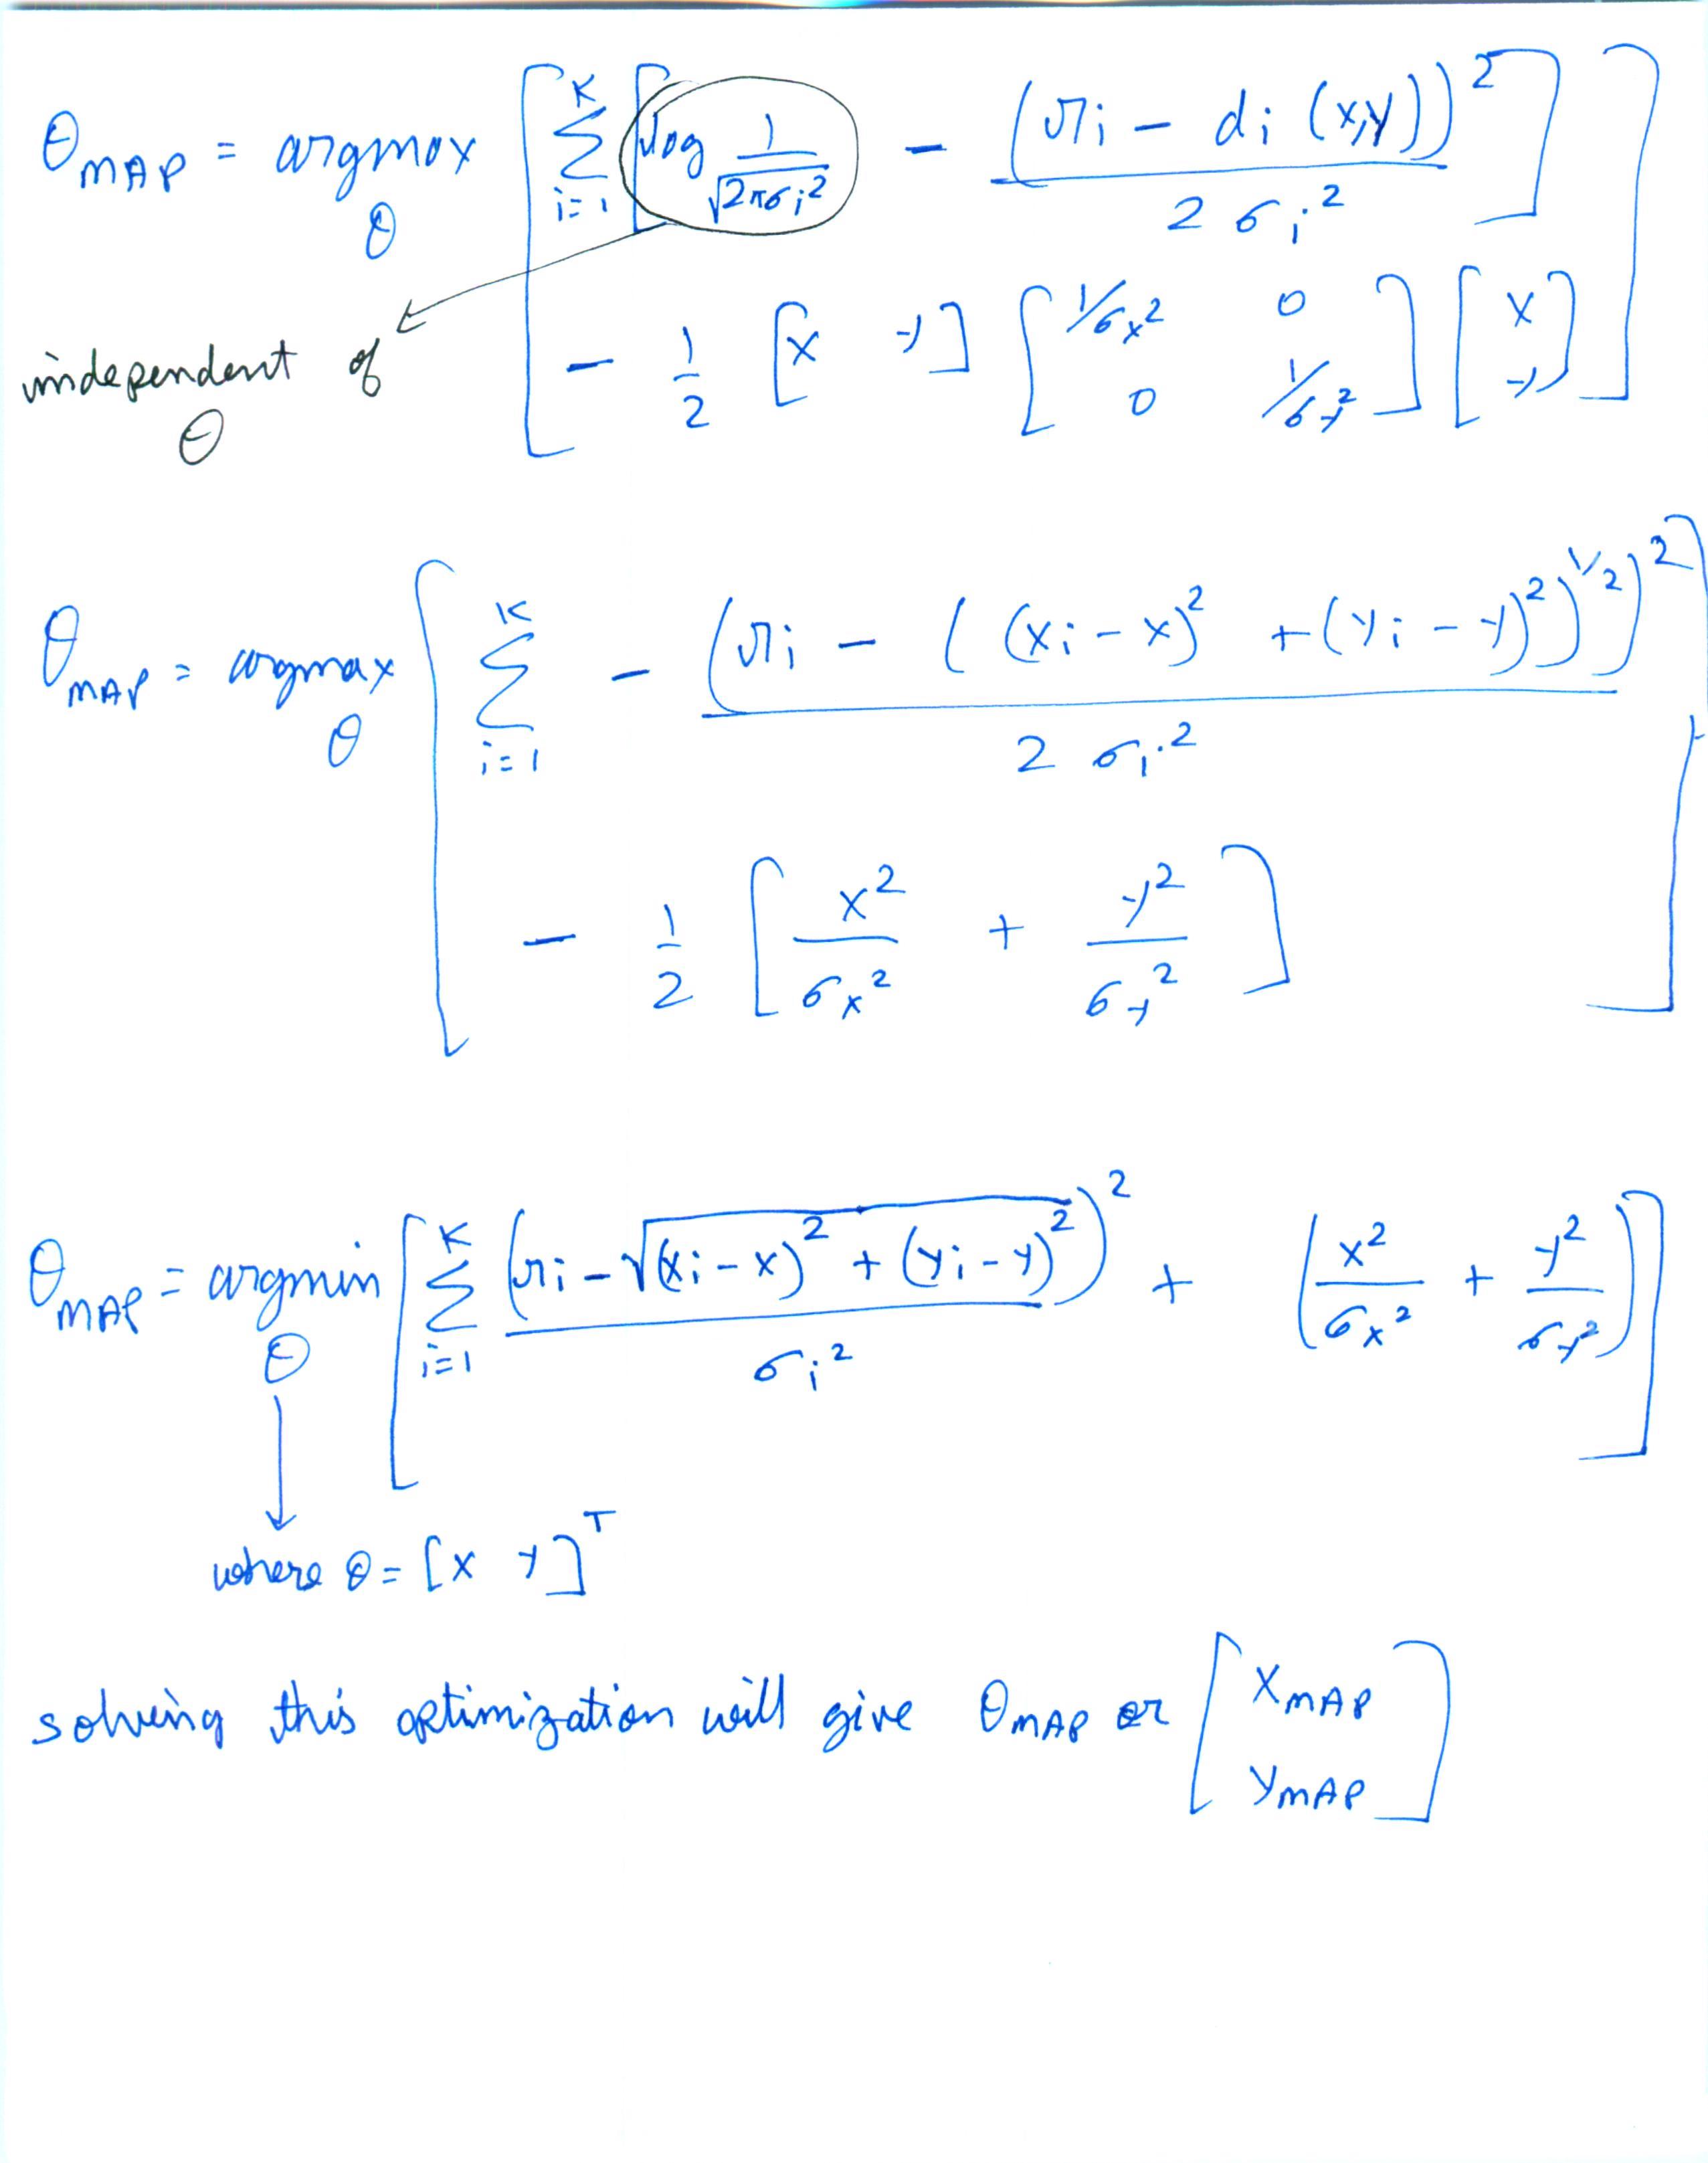 θ_MAP = argmax_θ [ Σ_{i=1}^{K} [ log 1/√(2πσ_i²) - (r_i - d_i(x,y))² / 2σ_i² ]
- 1/2 [x y] [ 1/σ_x² 0 ; 0 1/σ_y² ] [ x ; y ] ]
independent of
θ
θ_MAP = argmax_θ [ Σ_{i=1}^{K} - (r_i - ((x_i - x)² + (y_i - y)²)^{1/2})² / 2σ_i²
- 1/2 [ x²/σ_x² + y²/σ_y² ] ]
θ_MAP = argmin_θ [ Σ_{i=1}^{K} (r_i - √((x_i - x)² + (y_i - y)²))² / σ_i² + ( x²/σ_x² + y²/σ_y² ) ]
where θ = [x y]^T
solving this optimization will give θ_MAP or [ x_MAP ; y_MAP ]